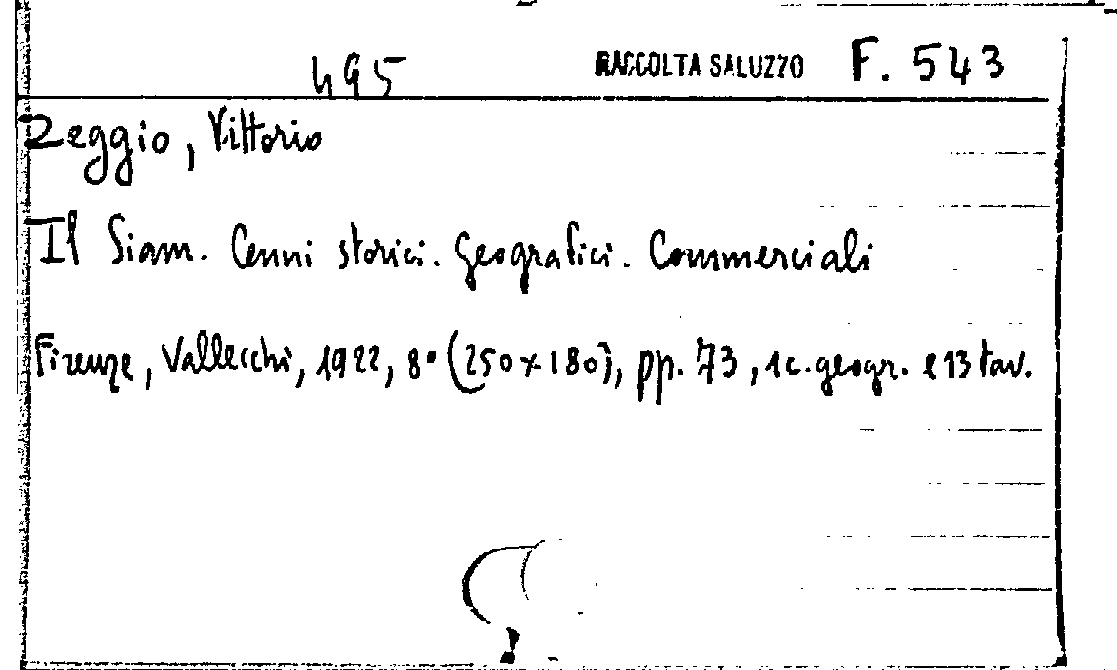 495 RACCOLTA SALUZZO F. 543
Zeggio, Vittorio
Il Siam. Cenni storici. Geografici. Commerciali
Firenze, Vallecchi, 1922, 8° (250x180), pp. 73, 1 c. geogr. e 13 tav.